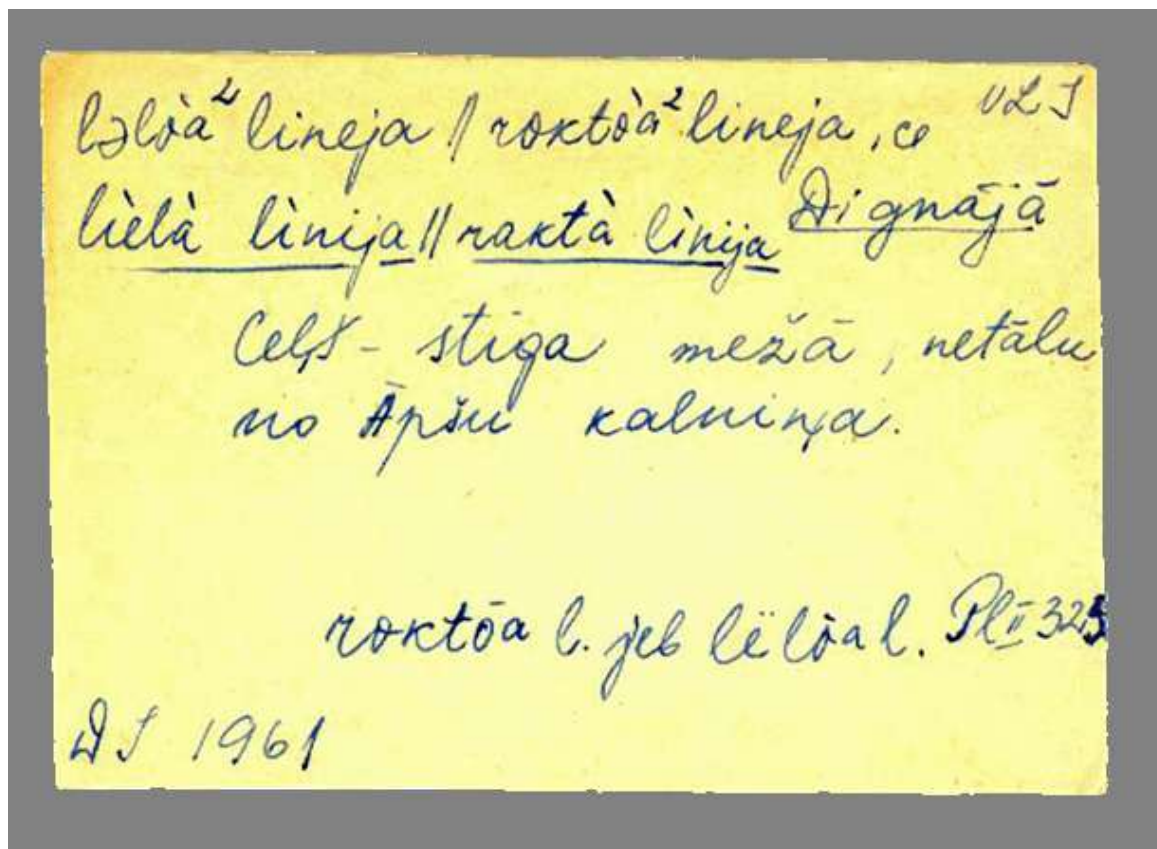 lələ̀a² lineja // roktòa² lineja, ce VLI
lìelà lìnija // raktà lìnija Dignājā
Ceļš - stiga mežā, netālu
no Āpšu kalniņa.
roktōa l. jeb lïlòa l. Pl II 325
DI 1961